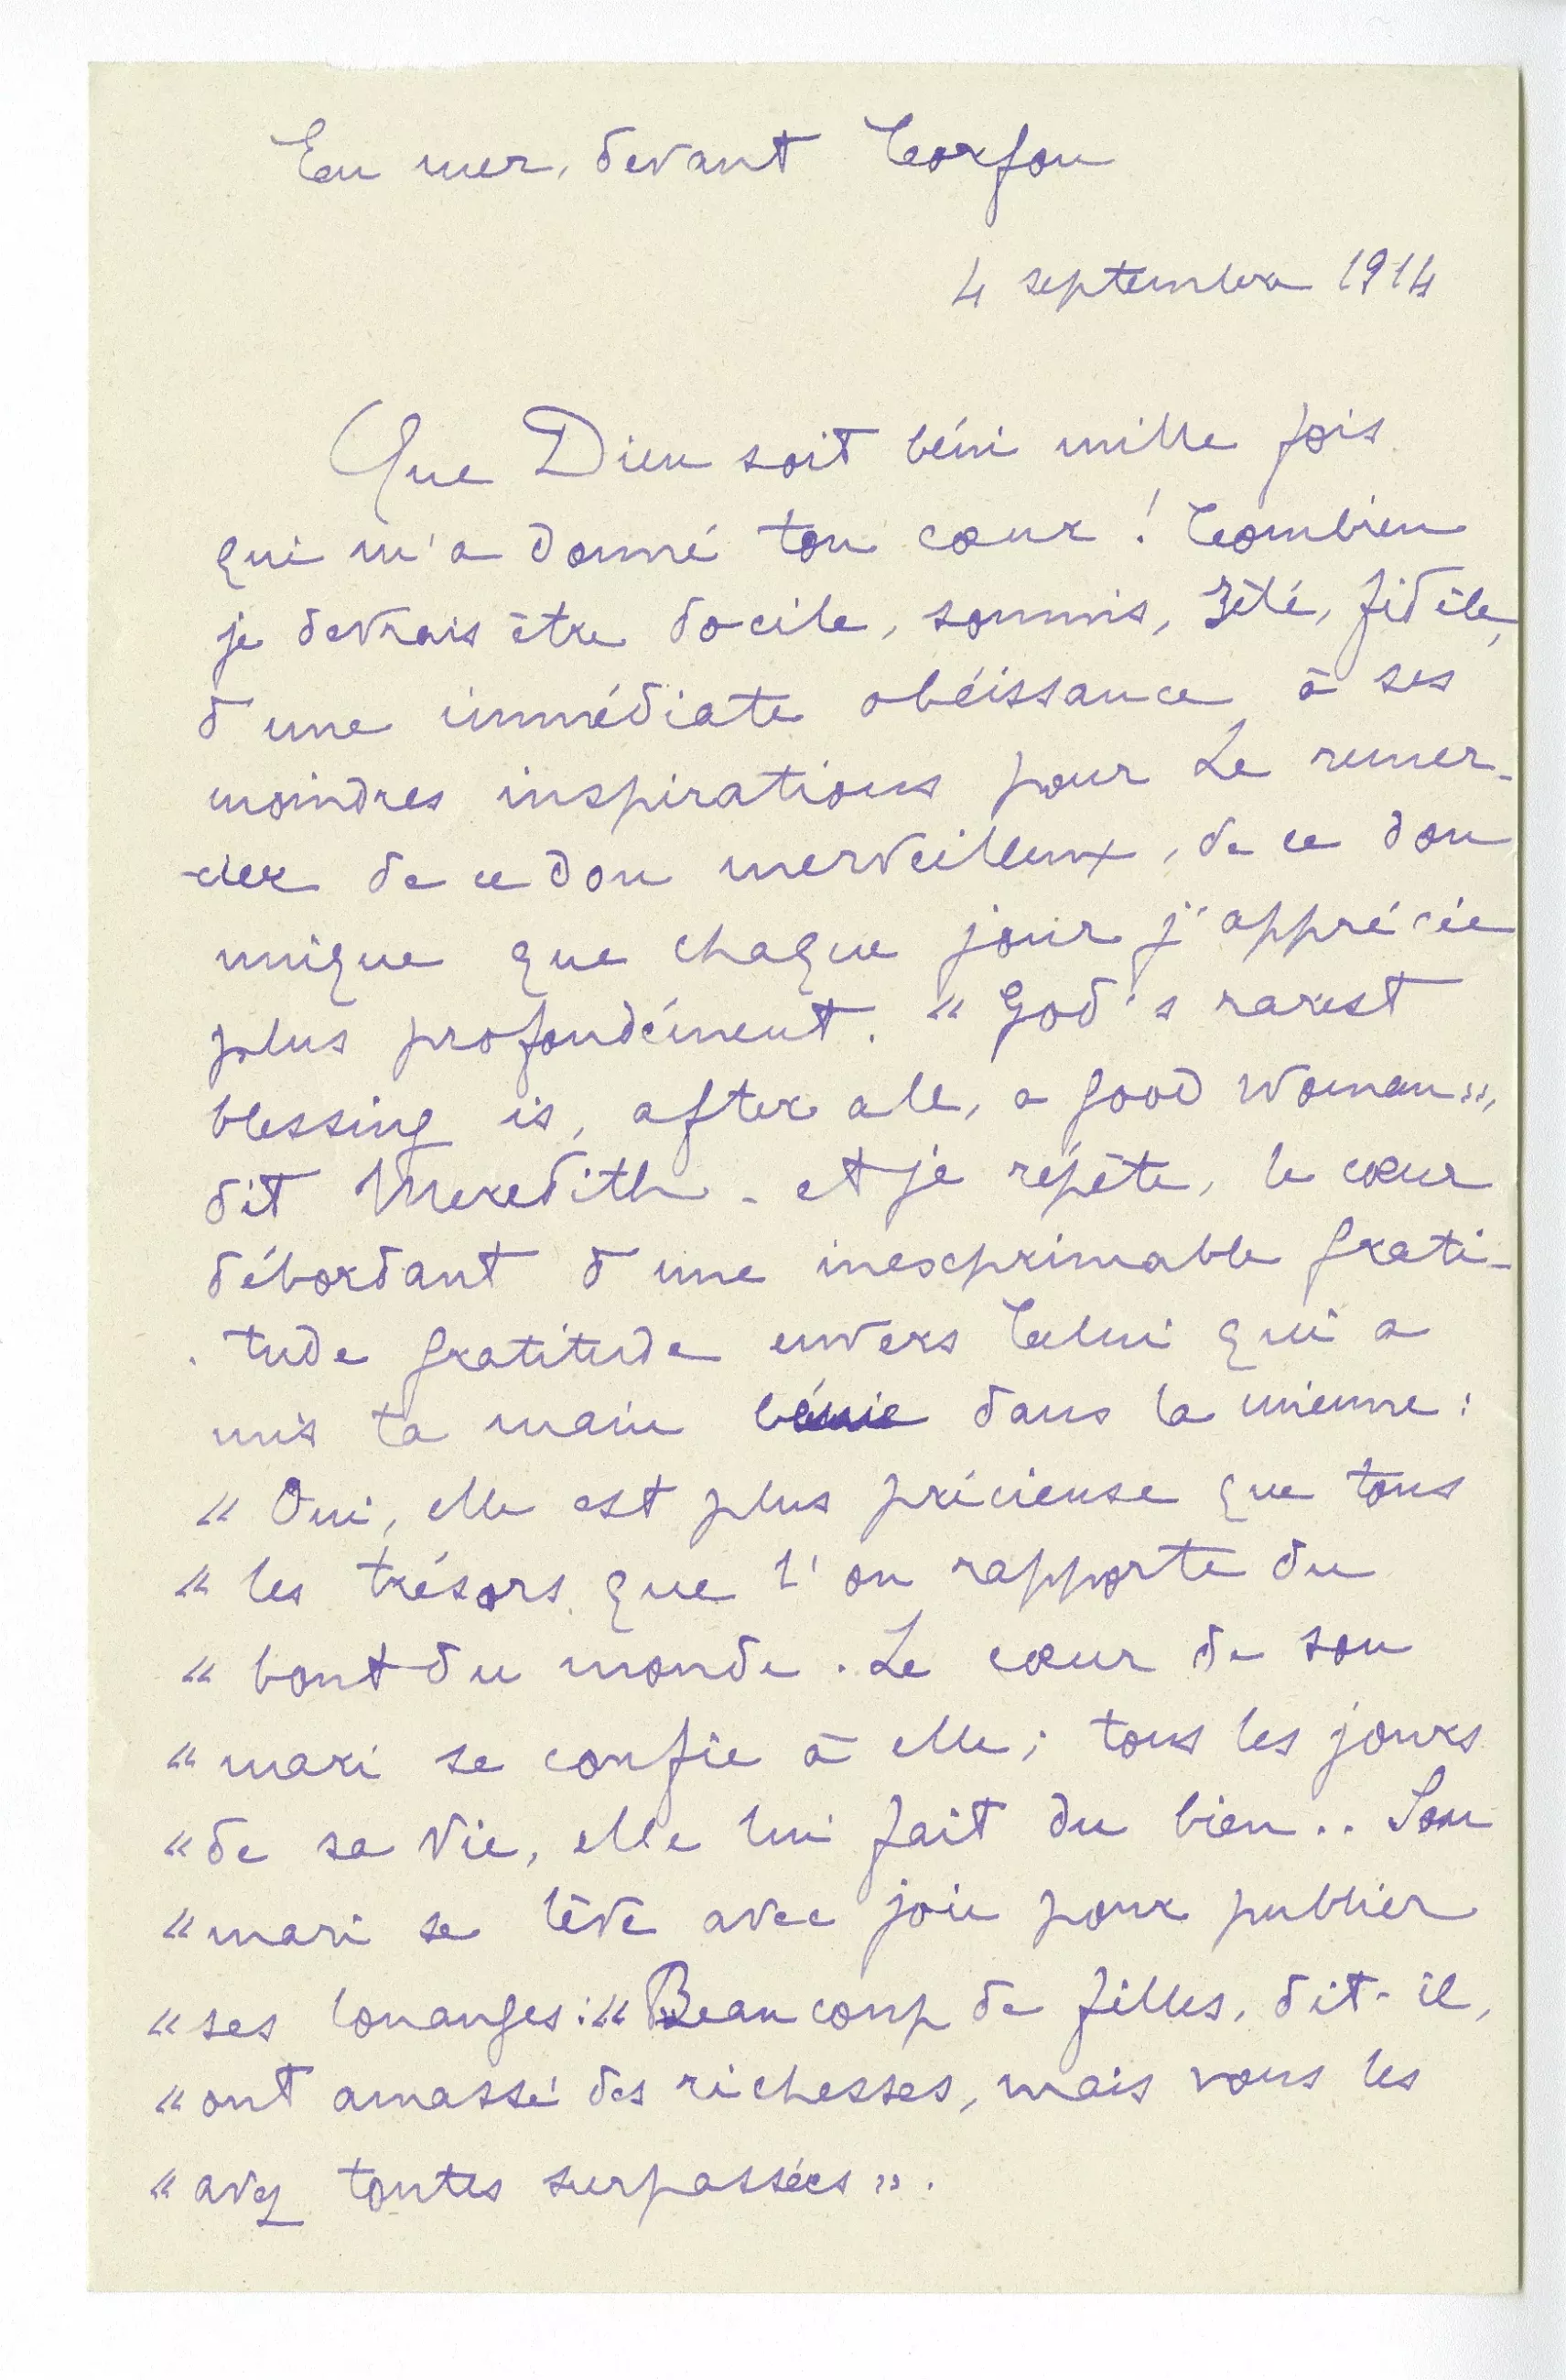 En mer, devant Corfou
4 septembre 1914
Que Dieu soit béni mille fois
qui m'a donné ton cœur ! Combien
je devrais être docile, soumis, zélé, fidèle,
d'une immédiate obéissance à ses
moindres inspirations pour Le remer-
-cier de ce don merveilleux, de ce don
unique que chaque jour j'apprécie
plus profondément. « God's rarest
blessing is, after all, a good woman »,
dit Meredith - et je répète, le cœur
débordant d'une inexprimable grati-
-tude gratitude envers Celui qui a
mis ta main bénie dans la mienne :
« Oui, elle est plus précieuse que tous
« les trésors que l'on rapporte du
« bout du monde. Le cœur de son
« mari se confie à elle ; tous les jours
« de sa vie, elle lui fait du bien.. Son
« mari se lève avec joie pour publier
« ses louanges : « Beaucoup de filles, dit-il,
« ont amassé des richesses, mais vous les
« avez toutes surpassées ».